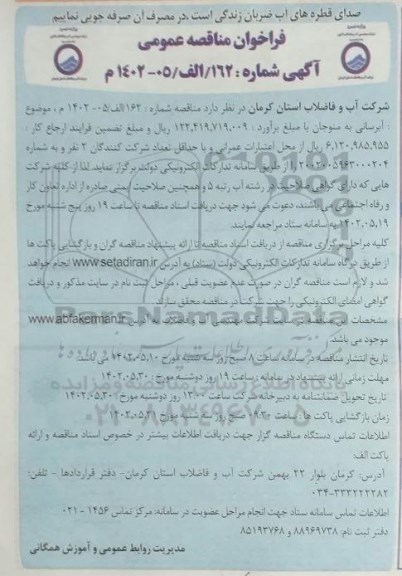 صدای قطره های آب ضربان زندگی است ،در مصرف آن صرفه جویی نماییم
فراخوان مناقصه عمومی
آگهی شماره : ۱۶۲/الف/۰۵-۱۴۰۲ م
شرکت آب و فاضلاب استان کرمان در نظر دارد مناقصه شماره : ۱۶۲/الف/۰۵- ۱۴۰۲ م ، موضوع
: آبرسانی به منوجان با مبلغ برآورد : ۱۲۲,۴۱۹,۷۱۹,۰۰۹ ریال و مبلغ تضمین فرایند ارجاع کار :
۶,۱۲۰,۹۸۵,۹۵۵ ریال از محل اعتبارات عمرانی و با حداقل تعداد شرکت کنندگان ۲ نفر و به شماره
۲۰۰۲۰۰۵۹۶۳۰۰۰۲۰۴ را از طریق سامانه تدارکات الکترونیکی دولت برگزار نماید. لذا از کلیه شرکت
هایی که دارای گواهی صلاحیت در رشته آب رتبه ۵ و همچنین صلاحیت ایمنی صادره از اداره تعاون کار
و رفاه اجتماعی می باشند، دعوت می شود جهت دریافت اسناد مناقصه تا ساعت ۱۹ روز پنج شنبه مورخ
۱۴۰۲,۰۵,۱۹ به سامانه ستاد مراجعه نمایند.
کلیه مراحل برگزاری مناقصه از دریافت اسناد مناقصه تا ارائه پیشنهاد مناقصه گران و بازگشایی پاکت ها
از طریق درگاه سامانه تدارکات الکترونیکی دولت (ستاد) به آدرس www.setadiran.ir انجام خواهد
شد و لازم است مناقصه گران در صورت عدم عضویت قبلی ، مراحل ثبت نام در سایت مذکور و دریافت
گواهی امضای الکترونیکی را جهت شرکت در مناقصه محقق سازند.
مشخصات این مناقصه در سایت شرکت مهندسی آب و فاضلاب به آدرس www.abfakerman.ir
موجود می باشد.
تاریخ انتشار مناقصه در سامانه ساعت ۸ صبح روز سه شنبه مورخ ۱۴۰۲,۰۵,۱۰ می باشد.
مهلت زمانی ارائه پیشنهاد در سامانه ساعت ۱۹ روز دوشنبه مورخ : ۱۴۰۲,۰۵,۳۰
تاریخ تحویل ضمانتنامه به دبیرخانه شرکت ساعت ۱۳:۰۰ روز دوشنبه مورخ ۱۴۰۲,۰۵,۳۰
زمان بازگشایی پاکت ها : ساعت ۹:۳۰ صبح روز سه شنبه مورخ ۱۴۰۲,۰۵,۳۱
اطلاعات تماس دستگاه مناقصه گزار جهت دریافت اطلاعات بیشتر در خصوص اسناد مناقصه و ارائه
پاکت الف:
آدرس: کرمان بلوار ۲۲ بهمن شرکت آب و فاضلاب استان کرمان- دفتر قراردادها - تلفن:
۰۳۴-۳۳۲۲۲۲۸۲
اطلاعات تماس سامانه ستاد جهت انجام مراحل عضویت در سامانه: مرکز تماس ۱۴۵۶ - ۰۲۱
دفتر ثبت نام: ۸۸۹۶۹۷۳۸ و ۸۵۱۹۳۷۶۸
مدیریت روابط عمومی و آموزش همگانی
ParsNamadData
پایگاه اطلاع رسانی مناقصه و مزایده
۰۲۱-۸۸۳۴۹۶۷۰-۵